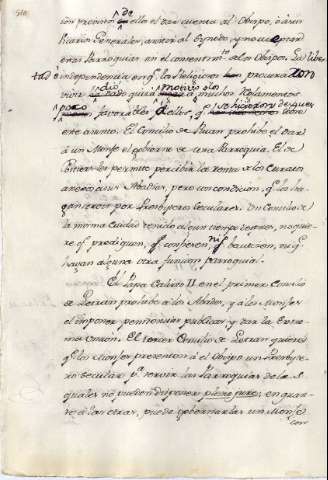 de
sion precision en ello el dar cuenta al Obispo, ò à sus
Vicarios Generales, asistir al Synodo, y no aceptar
otras Parroquias sin el consentim.to de los Obispos. La liber
tad è independencia en q.e los Religiosos han procurado
vivir dió motivo à muchos Reglamentos
poco favorables à ellos, q.e se hicieron despues
sobre este asunto. El Concilio de Ruan prohibe el dar
à un Monje el gobierno de una Parroquia. El de
Poitiers les permite percibir la renta de los Curatos
anexos à sus Abadias, pero con condicion, q.e los ha
gan servir por Presbyteros Seculares. Un Concilio de
la misma Ciudad tenido algun tiempo despues, no quie
re q.e prediquen, q.e confiesen, ni q.e bautizen, ni q.e
hayan alguna otra funcion parroquial.
El Papa Calixto II en el primer Concilio
de Letran prohibe à los Abades, y à los Monjes
el imponer penitencias publicas, y dar la Extre
ma uncion. El tercer Concilio de Letran quiere
q.e los Monjes presenten à el Obispo un Presbyte
ro Secular p.a servir las Parroquias de las
quales no pueden disponer pleno jure; en quan
to à las otras, puede gobernarlas un Monje
con